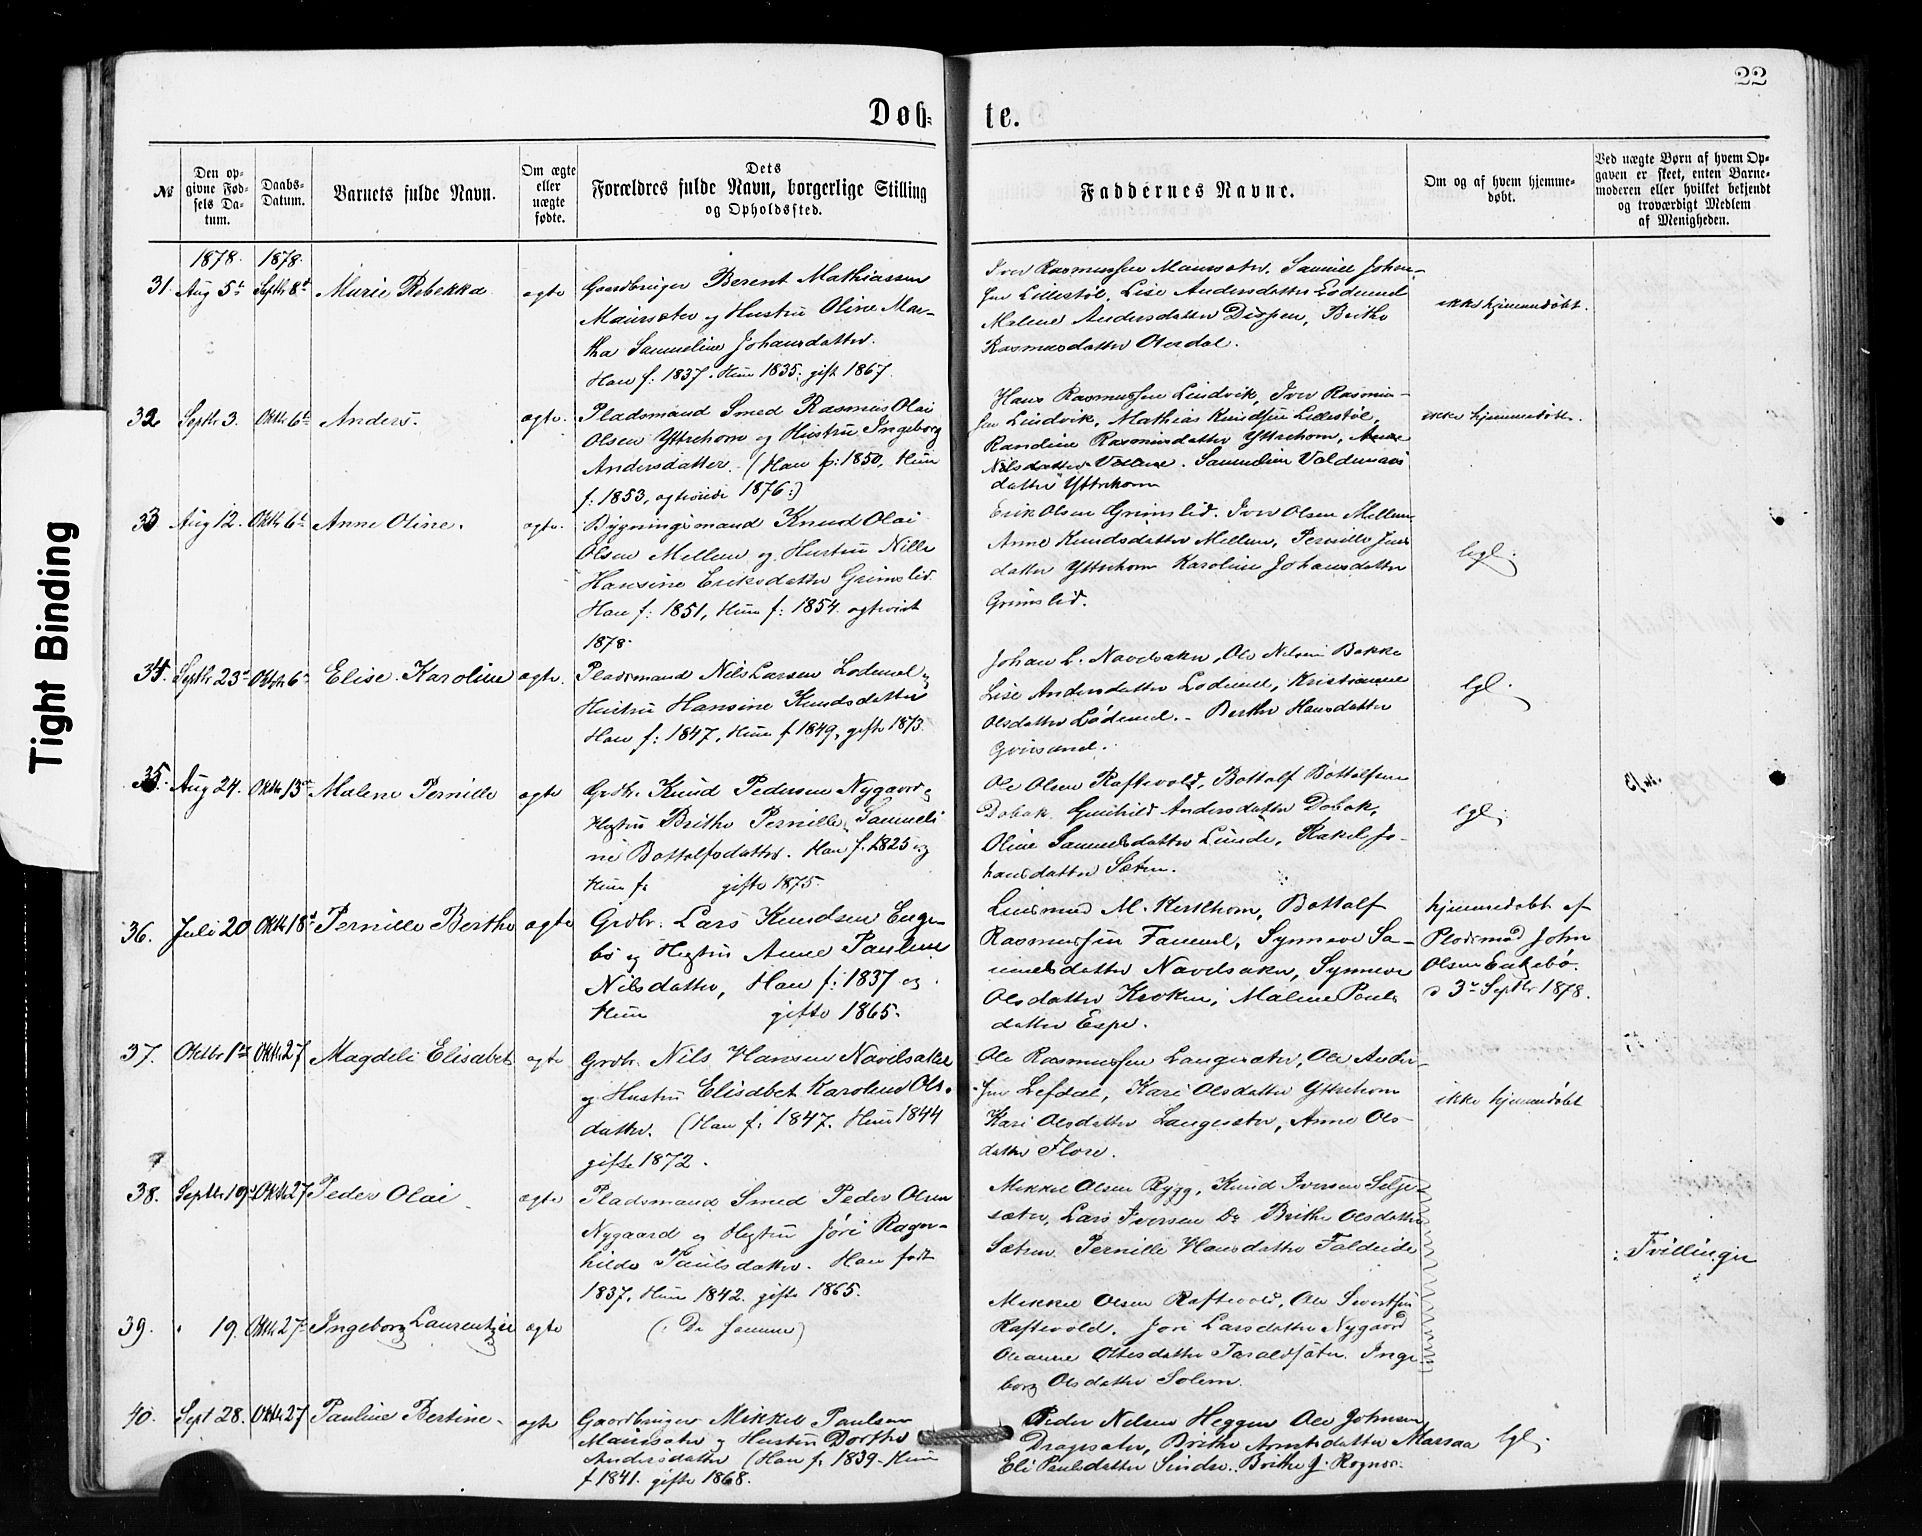 22
Døb-
te.
No
Den op-
givne Fød-
sels Da-
tum.
Daabs-
Datum.
Barnets fulde Navn.
Om ægte
eller
uægte
fødte.
Dets
Forældres fulde Navn, borgerlige Stilling
og Opholdssted.
Faddernes Navne.
Om og af hvem hjemme-
døbt.
Ved uægte Børn af hvem Op-
gaven er skeet, enten Barne-
moderen eller hvilket bekjendt
og troværdigt Medlem
af Menigheden.
Tight Binding
1878. 1878.
31. Aug 5t Septbr 8d Marie Rebekka ægte
Gaardbruger Berent Mathiassen
Maurseter og Hustru Oline Mar-
tha Sameline Johansdatter.
Han f: 1837. Hun 1835; gift 1867.
Iver Rasmussen Maurseter, Samuel Johan-
sen Lillestøl, Lise Andersdatter Lødemel
Malene Andersdatter Digsen, Brithe
Rasmusdatter Oterdal.
ikke hjemmedøbt.
32 Septbr 3. Oktbr 6t Anders. ægte.
Pladsmand Smed Rasmus Olai
Olsen Yttrehorn og Hustru Ingeborg
Andersdatter. (Han f: 1850, Hun
f: 1853, ægteviede 1876.)
Hans Rasmussen Lindvik, Iver Rasmus-
sen Lindvik, Mathias Knudsen Lillestøl,
Randine Rasmusdatter Yttrehorn, Anne
Nilsdatter. Samueline Valdemars
datter Yttrehorn
ikke hjemmedøbt.
33 Aug 12. Oktbr 6t Anne Oline. ægte.
Bygningsmand Knud Olai
Olsen Mellem og Hustru Nille
Hansine Eriksdatter Grimslid.
Han f: 1851, Hun f: 1854. ægteviet
1878.
Erik Olsen Grimslid. Iver Olsen Mellem
Anne Knudsdatter Mellem, Pernille Jens
datter Yttrehorn Karoline Johansdatter
Grimslid.
ligl.
34. Septbr 23d Oktbr 6t Elise Karoline ægte.
Pladsmand Nils Larsen Lødemel og
Hustru Hansine Knudsdatter
Han f: 1847, Hun f 1849, gifte 1873.
Johan L. Navelsaker, Ole Nilsen Bakke
Lise Andersdatter Lødemel, Kristianne
Olsdatter Lødemel. - Berthe Hansdatter
lgl.
35. Aug 24. Oktbr 13de Malene Pernille ægte
Grdbr. Knud Pedersen Nygaard og
Hustru Brithe Pernille Sameli
ne Bottolfsdatter. Han f. 1825 og
Hun f: gifte 1875.
Ole Olsen Raftevold, Bottolf Bottolfsen
Dobak. Gunhild Andersdatter Dobak,
Oline Samuelsdatter Linde, Rakel Jo-
hansdatter Sæten.
lgl.
36. Juli 20 Oktbr 18d Pernille Berthe ægte
Grdbr. Lars Knudsen Enge-
bø og Hustru Anne Pauline
Nilsdatter, Han f: 1837 og
Hun gifte 1865.
Lensmand M. Hestehorn, Bottolf
Rasmussen Tammel, Synneve Sa-
muelsdatter Navelsaker, Synneve
Olsdatter Kroken, Malene Pouls
datter Espe.
hjemmedøbt af
Pladsmd John
Olsen Engebø.
d 3de Septbr 1878.
37. Oktbr 1ste Oktbr 27 Magdeli Elisabet ægte
Grdbr. Nils Hansen Navelsaker
og Hustru Elisabet Karoline Ols.
datter. (Han f: 1847. Hun 1844
gifte 1872.
Ole Rasmussen Langesæter, Ole Ander-
sen Lefdal, Kari Olsdatter Yttrehorn
Kari Olsdatter Langesæter, Anne Ols-
datter Flore.
ikke hjemmedøbt
38. Septbr 19d Oktbr 27 Peder Olai ægte
Pladsmand Smed Peder Olsen
Nygaard og Hustru Jøri Ragn-
hilde Paulsdatter. Han født
1837, Hun 1842. gifte 1865.
Mikkel Olsen Rygg, Knud Iversen Selje-
sæter, Lars Iversen Do Brithe Olsdatter
Sæten Pernille Hansdatter Faldeide
Tvillinger
39. " 19. Oktbr 27 Ingeborg Laurentzie ægte
(: De samme)
Mikkel Olsen Raftevold, Ole Sivertsen
Raftevold. Jøri Larsdatter Nygaard
Olianne Ottesdatter Taraldsæter. Inge
borg Olsdatter Solem.
40. Sept 28. Oktbr 27 Pauline Bertine. ægte
Gaardbruger Mikkel Paulsen
Maurseter og Hustru Dorthe
Andersdatter (Han f. 1839. Hun
f 1841. gifte 1868.
Peder Nilsen Heggen Ole Johnsen
Dragesæter, Brithe Arntsdatter Maraas
Eli Paulsdatter Sindre. Brithe J. Rognes.
lgl.